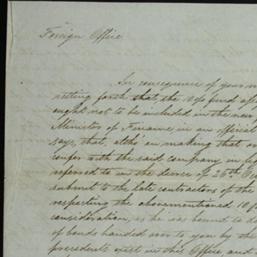 Foreign Office
In consequence of your n
setting forth that the 10 pc fund off
ought not to be included in the new
Minister of Finance in an official
says, that, altho in making that or
confer with the said company in
referred to in the decree of 28th
submit to the late contractors of the
respecting the abovementioned 10 p
consideration, as he was bound to d
of bonds handed over to you by th
precedents exist in this Office and